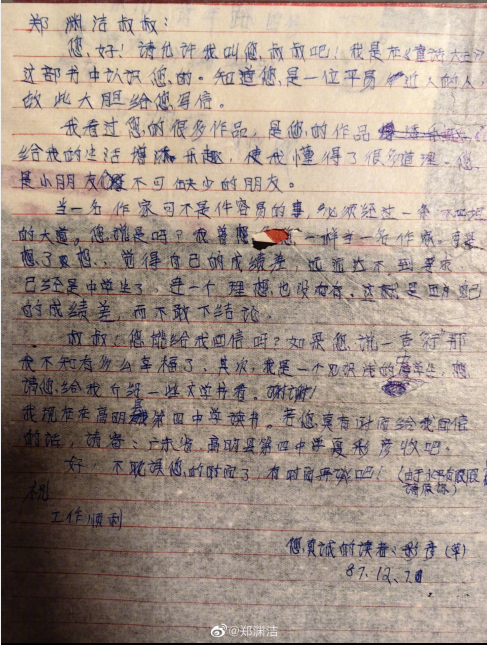 郑渊洁叔叔：
您好！请允许我叫您叔叔吧！我是在《童话大王》
这部书中认识您的。知道您是一位平易近人的人，
故此大胆给您写信。
我看过您的很多作品，是您的作品
给我的生活增添乐趣，使我懂得了很多道理。您
是小朋友不可缺少的朋友。
当一名作家可不是件容易的事，必须经过一条
的大道，您说是吗？我曾想一样当一名作家。
想了又想，觉得自己的成绩差，远远达不到要求
已经是中学生了，连一个理想也没有，这就是因为自己
的成绩差，而不敢下结论。
叔叔！您能给我回信吗？如果您说一声"行"那
我不知有多么幸福了，其次，我是一个中学生，想
请您给我介绍一些文学书看。谢谢！
我现在在高明县第四中学读书。若您真有时间给我回信
的话，请寄：广东省高明县第四中学夏彩彦收吧。
好，不耽误您的时间了，有时间再谈吧！（由于水平有限
请原谅）
祝
工作顺利
您真诚的读者：彩彦（草）
87.12.
@郑渊洁